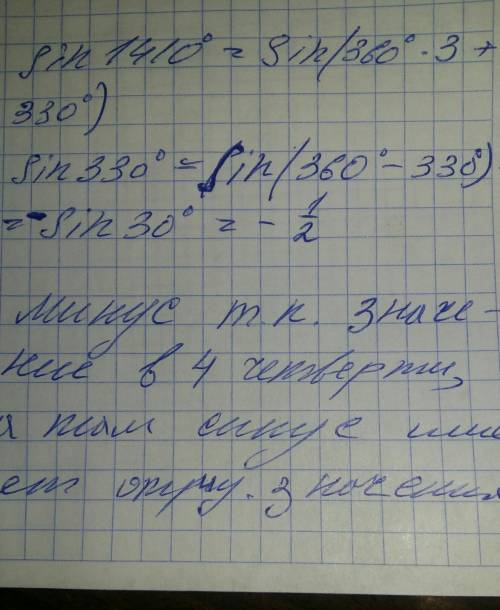 sin 1410° = sin(360° · 3 +
330°)
sin 330° = sin(360° - 330°)
= - sin 30° = - 1/2
минус т.к. значе-
ние в 4 четверти,
а там синус име
ет отриц. значения